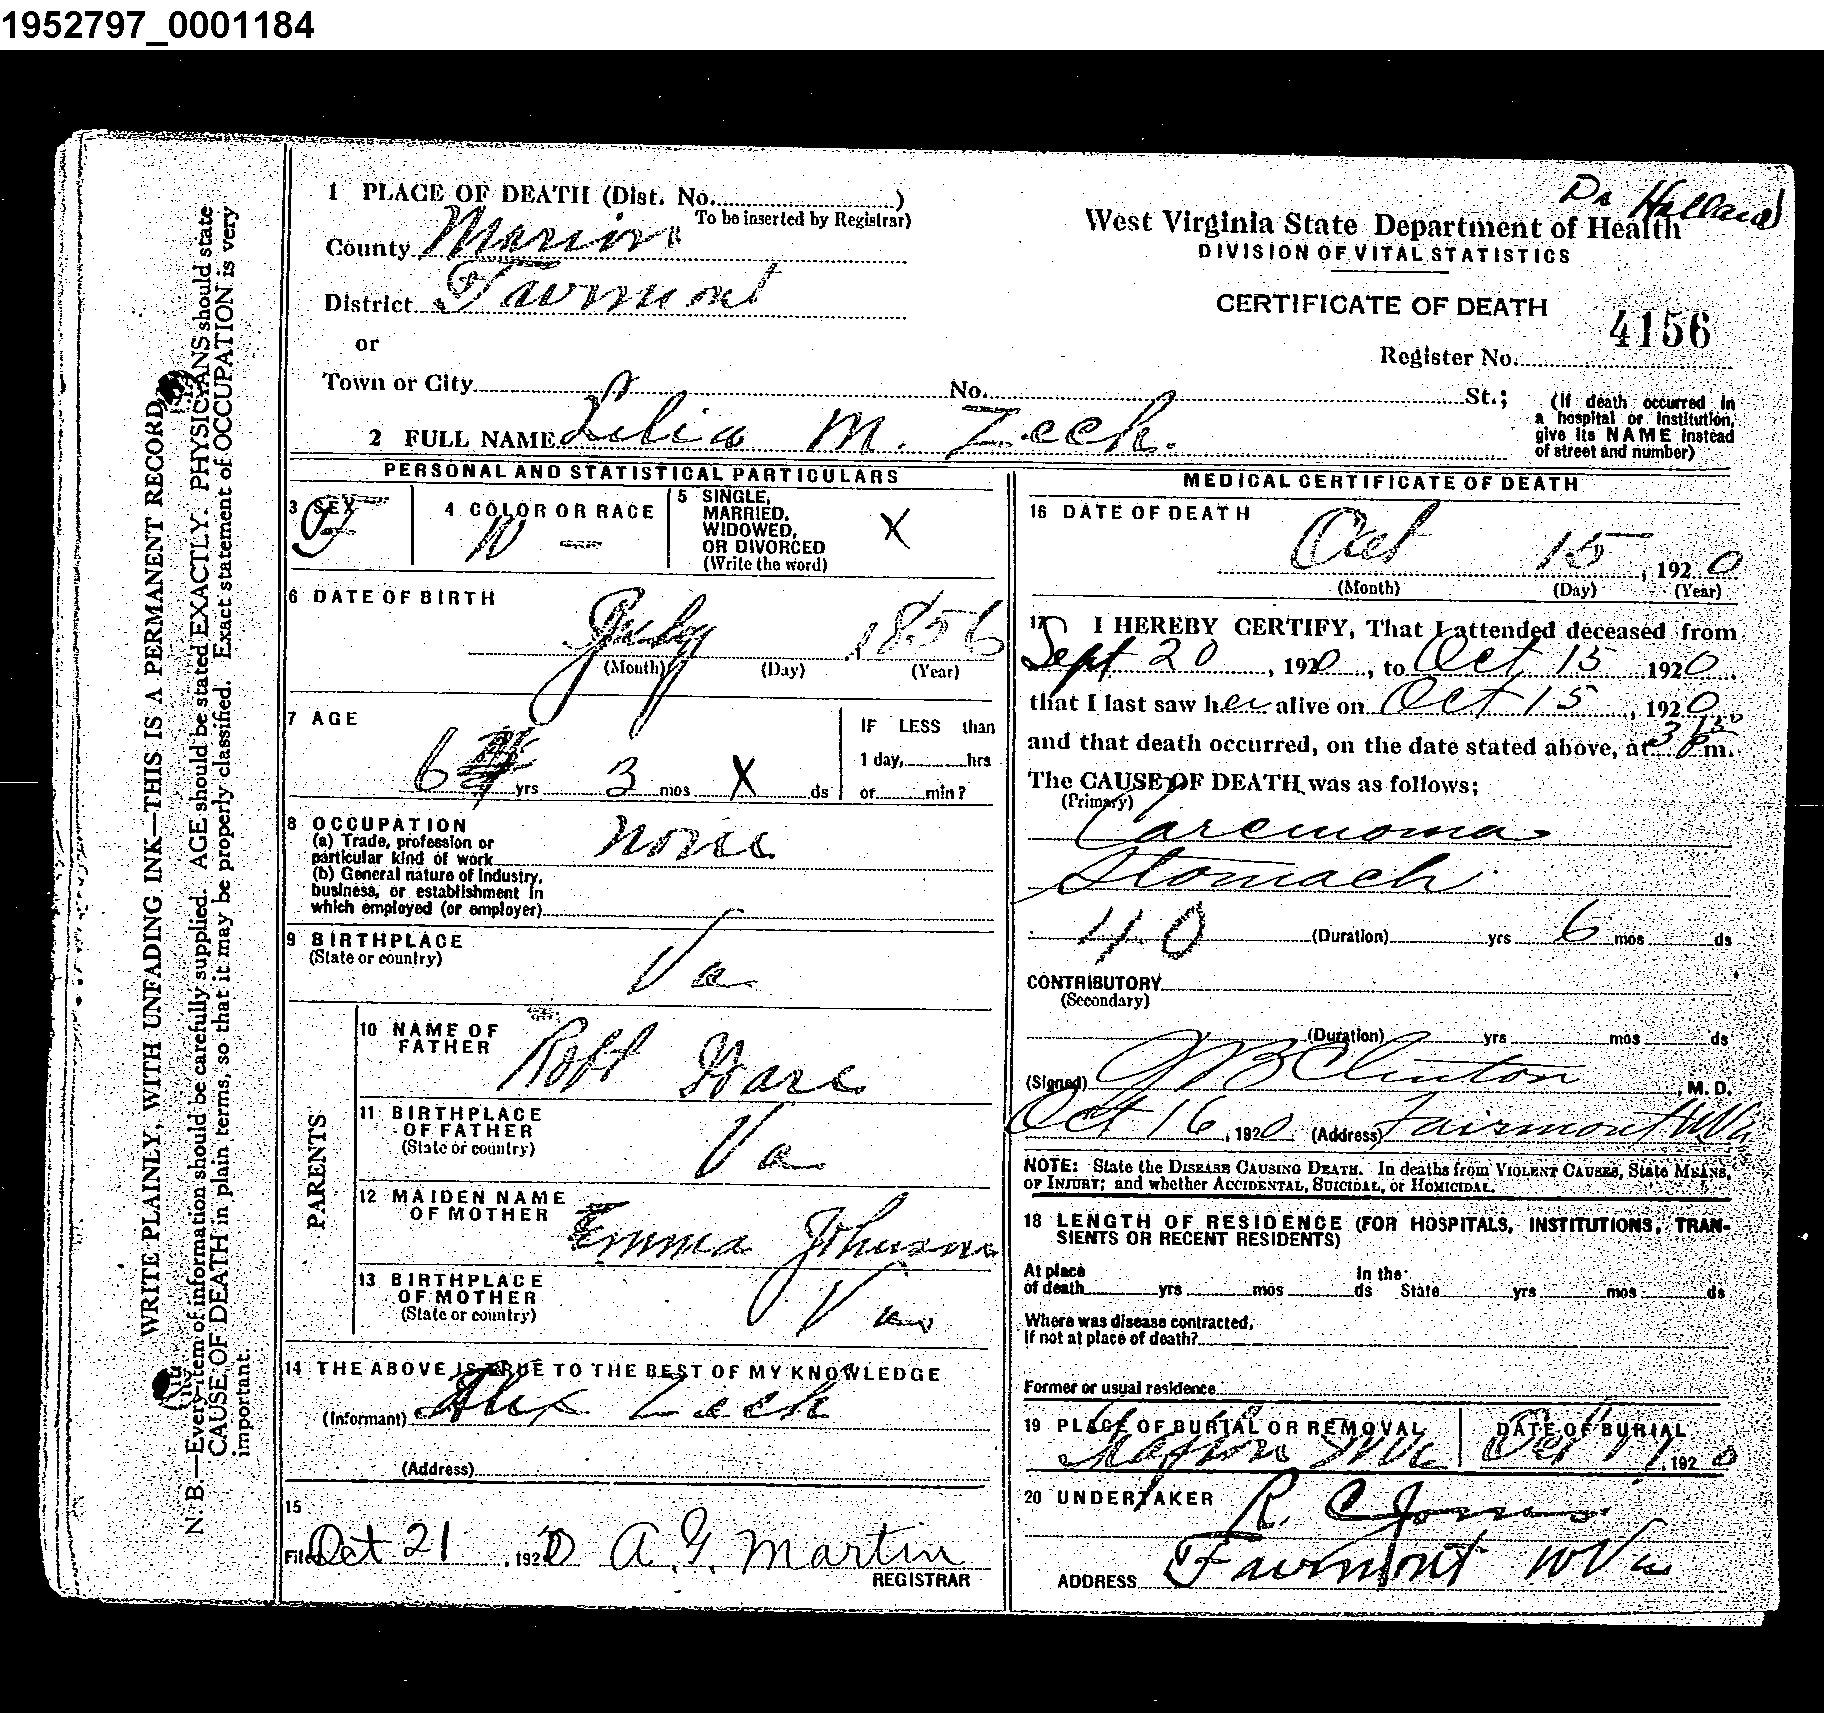 1952797_0001184
Dr Holland
1 PLACE OF DEATH (Dist. No. )
To be inserted by Registrar)
County Marion
District Fairmont
or
Town or City No. St.;
West Virginia State Department of Health
DIVISION OF VITAL STATISTICS
CERTIFICATE OF DEATH
4156
Register No.
(If death occurred in
a hospital or institution,
give its NAME instead
of street and number)
2 FULL NAME Lelia M. Zech.
PERSONAL AND STATISTICAL PARTICULARS
3 SEX F
4 COLOR OR RACE W
5 SINGLE,
MARRIED,
WIDOWED,
OR DIVORCED
(Write the word)
X
6 DATE OF BIRTH
July 1856
(Month) (Day) (Year)
7 AGE
6 yrs 3 mos X ds
IF LESS than
1 day, hrs
or min?
8 OCCUPATION
(a) Trade, profession or
particular kind of work None
(b) General nature of Industry,
business, or establishment in
which employed (or employer)
9 BIRTHPLACE
(State or country)
Va
PARENTS
10 NAME OF
FATHER
Robt
11 BIRTHPLACE
OF FATHER
(State or country)
Va
12 MAIDEN NAME
OF MOTHER
Emma Johnson
13 BIRTHPLACE
OF MOTHER
(State or country)
Va
14 THE ABOVE IS TRUE TO THE BEST OF MY KNOWLEDGE
(Informant) Alex Zech
(Address)
15
Filed Oct 21, 1920 A. G. Martin
REGISTRAR
MEDICAL CERTIFICATE OF DEATH
16 DATE OF DEATH
Oct 15, 1920
(Month) (Day) (Year)
17 I HEREBY CERTIFY, That I attended deceased from
Sept 20, 1920, to Oct 15 1920.
that I last saw her alive on Oct 15, 1920,
and that death occurred, on the date stated above, at 3 m.
The CAUSE OF DEATH was as follows;
(Primary)
Carcinoma
Stomach
40 (Duration) yrs 6 mos ds
CONTRIBUTORY
(Secondary)
(Duration) yrs mos ds
(Signed) JB Clinton, M. D.
Oct 16, 1920 (Address) Fairmont W Va
NOTE: State the DISEASE CAUSING DEATH. In deaths from VIOLENT CAUSES, State MEANS,
OF INJURY; and whether ACCIDENTAL, SUICIDAL, or HOMICIDAL.
18 LENGTH OF RESIDENCE (FOR HOSPITALS, INSTITUTIONS, TRAN-
SIENTS OR RECENT RESIDENTS)
At place In the
of death yrs mos ds State yrs mos ds
Where was disease contracted,
if not at place of death?
Former or usual residence
19 PLACE OF BURIAL OR REMOVAL
DATE OF BURIAL
Oct 17, 1920
20 UNDERTAKER R. C. Jones
ADDRESS Fairmont W Va
WRITE PLAINLY, WITH UNFADING INK—THIS IS A PERMANENT RECORD
N. B.—Every item of information should be carefully supplied. AGE should be stated EXACTLY. PHYSICIANS should state
CAUSE OF DEATH in plain terms, so that it may be properly classified. Exact statement of OCCUPATION is very
important.